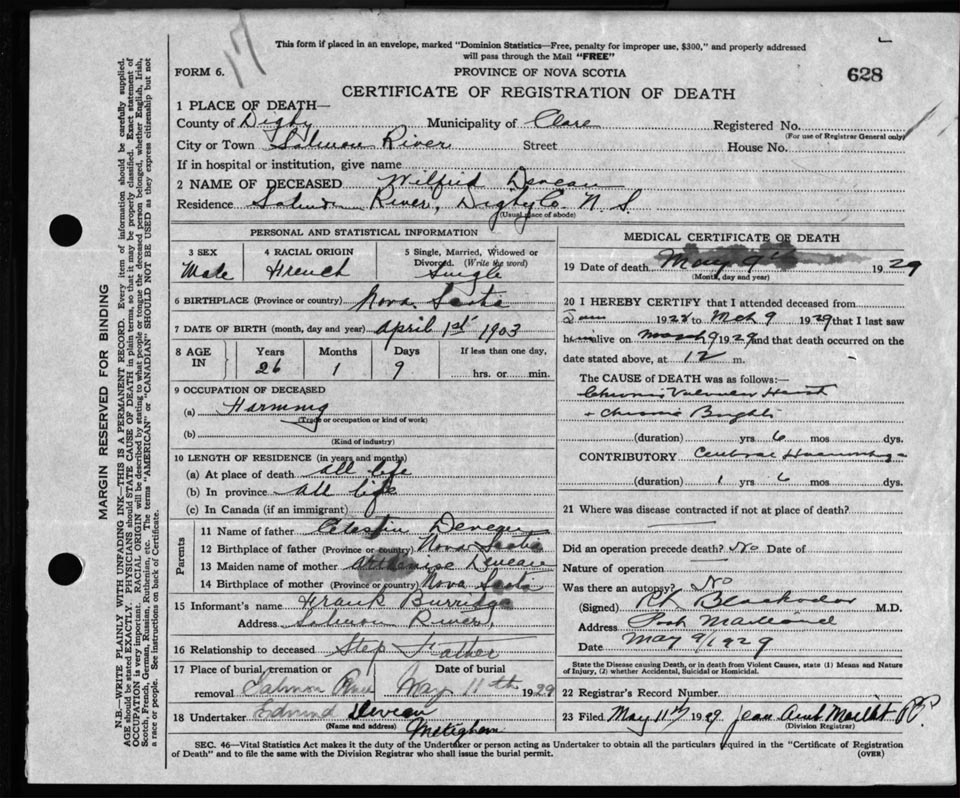 17
This form if placed in an envelope, marked "Dominion Statistics—Free, penalty for improper use, $300," and properly addressed
will pass through the Mail "FREE"
FORM 6.
PROVINCE OF NOVA SCOTIA
628
CERTIFICATE OF REGISTRATION OF DEATH
1 PLACE OF DEATH—
County of Digby Municipality of Clare Registered No.
(For use of Registrar General only)
City or Town Salmon River Street House No.
If in hospital or institution, give name
2 NAME OF DECEASED Wilfrid Deveau
Residence Salmon River, Digby Co. N. S.
(Usual place of abode)
PERSONAL AND STATISTICAL INFORMATION
3 SEX Male
4 RACIAL ORIGIN French
5 Single, Married, Widowed or Divorced. (Write the word) Single
6 BIRTHPLACE (Province or country) Nova Scotia
7 DATE OF BIRTH (month, day and year) April 1st 1903
8 AGE IN Years 26 Months 1 Days 9 If less than one day, hrs. or min.
9 OCCUPATION OF DECEASED
(a) Farming
(Trade or occupation or kind of work)
(b)
(Kind of industry)
10 LENGTH OF RESIDENCE (in years and months)
(a) At place of death all life
(b) In province all life
(c) In Canada (if an immigrant)
Parents
11 Name of father Celestin Deveau
12 Birthplace of father (Province or country) Nova Scotia
13 Maiden name of mother Deveau
14 Birthplace of mother (Province or country) Nova Scotia
15 Informant's name Frank Burridge
Address Salmon River,
16 Relationship to deceased Step Father
17 Place of burial, cremation or removal Salmon River Date of burial May 11th 1929
18 Undertaker Edmund Deveau
(Name and address) Meteghan
MEDICAL CERTIFICATE OF DEATH
19 Date of death May 9th 1929
(Month, day and year)
20 I HEREBY CERTIFY that I attended deceased from
Jan 1928 to Mch 9 1929 that I last saw
him alive on March 9 1929 and that death occurred on the
date stated above, at 12 m.
The CAUSE OF DEATH was as follows:—
Chronic Valvular Heart
+ chronic Brights
(duration) yrs 6 mos dys.
CONTRIBUTORY Cerebral Haemorrhage
(duration) 1 yrs 6 mos dys.
21 Where was disease contracted if not at place of death?
Did an operation precede death? No Date of
Nature of operation
Was there an autopsy? No
(Signed) Blackadar M.D.
Address Port Maitland
Date May 9/1929
State the Disease causing Death, or in death from Violent Causes, state (1) Means and Nature
of Injury, (2) whether Accidental, Suicidal or Homicidal.
22 Registrar's Record Number
23 Filed May 11th 1929 Jean
(Division Registrar)
SEC. 46—Vital Statistics Act makes it the duty of the Undertaker or person acting as Undertaker to obtain all the particulars required in the "Certificate of Registration
of Death" and to file the same with the Division Registrar who shall issue the burial permit.
(OVER)
MARGIN RESERVED FOR BINDING
N.B.—WRITE PLAINLY WITH UNFADING INK—THIS IS A PERMANENT RECORD. Every item of information should be carefully supplied.
AGE should be stated EXACTLY. PHYSICIANS should STATE CAUSE OF DEATH in plain terms, so that it may be properly classified. Exact statement of
OCCUPATION is very important. RACIAL ORIGIN will be described by stating to what people or tongue the deceased person belonged, whether English, Irish,
Scotch, French, German, Russian, Ruthenian, etc. The terms "AMERICAN" or "CANADIAN" SHOULD NOT BE USED as they express citizenship but not
a race or people. See instructions on back of Certificate.